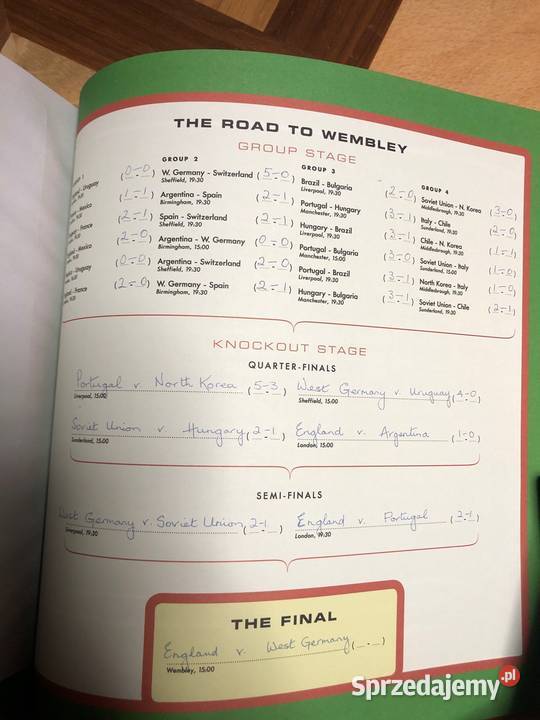 THE ROAD TO WEMBLEY
GROUP STAGE
Uruguay (0-0)
(1-1)
(2-1)
(2-0)
Uruguay (0-0)
France (2-0)
GROUP 2
W. Germany - Switzerland (5-0)
Sheffield, 19:30
Argentina - Spain (2-1)
Birmingham, 19:30
Spain - Switzerland (2-1)
Sheffield, 19:30
Argentina - W. Germany (0-0)
Birmingham, 15:00
Argentina - Switzerland (2-0)
Sheffield, 19:30
W. Germany - Spain (2-1)
Birmingham, 19:30
GROUP 3
Brazil - Bulgaria (2-0)
Liverpool, 19:30
Portugal - Hungary (3-1)
Manchester, 19:30
Hungary - Brazil (3-1)
Liverpool, 19:30
Portugal - Bulgaria (3-0)
Manchester, 15:00
Portugal - Brazil (3-1)
Liverpool, 19:30
Hungary - Bulgaria (3-1)
Manchester, 19:30
GROUP 4
Soviet Union - N. Korea (3-0)
Middlesbrough, 19:30
Italy - Chile (2-0)
Sunderland, 19:30
Chile - N. Korea (1-1)
Middlesbrough, 19:30
Soviet Union - Italy (1-0)
Sunderland, 15:00
North Korea - Italy (1-0)
Middlesbrough, 19:30
Soviet Union - Chile (2-1)
Sunderland, 19:30
KNOCKOUT STAGE
QUARTER-FINALS
Portugal v. North Korea (5-3)
Liverpool, 15:00
West Germany v. Uruguay (4-0)
Sheffield, 15:00
Soviet Union v. Hungary (2-1)
Sunderland, 15:00
England v. Argentina (1-0)
London, 15:00
SEMI-FINALS
West Germany v. Soviet Union (2-1)
Liverpool, 19:30
England v. Portugal (2-1)
London, 19:30
THE FINAL
England v. West Germany ( - )
Wembley, 15:00
Sprzedajemy.pl